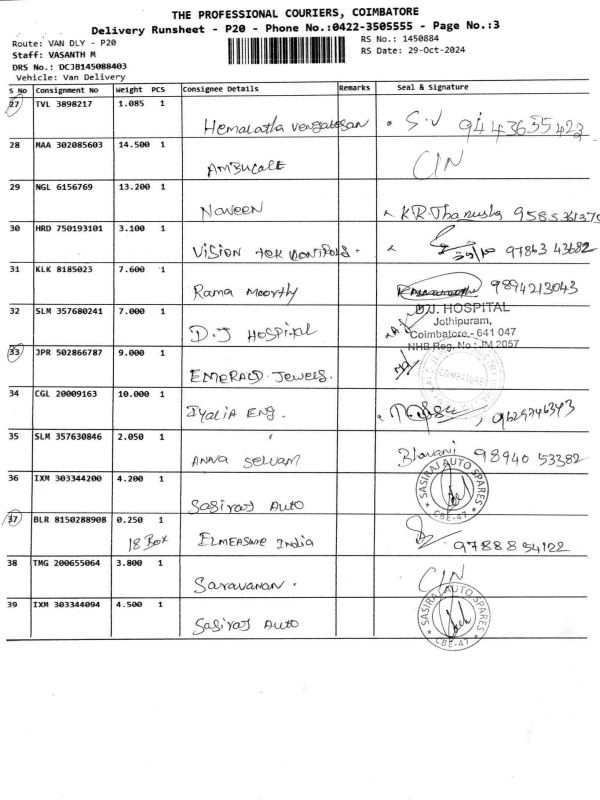 THE PROFESSIONAL COURIERS, COIMBATORE
Delivery Runsheet - P20 - Phone No.:0422-3505555 - Page No.:3
Route: VAN DLY - P20
RS No.: 1450884
Staff: VASANTH M
RS Date: 29-Oct-2024
DRS No.: DCJB145088403
Vehicle: Van Delivery
S No Consignment No Weight PCS Consignee Details Remarks Seal & Signature
27 TVL 3898217 1.085 1
Hemalatha Vengatesan S.V 9443635423
28 MAA 302085603 14.500 1
AMBUCARE C/N
29 NGL 6156769 13.200 1
NAVEEN K.R.Thanush
30 HRD 750193101 3.100 1
VISION TEK CONTROLS. 97863 43682
31 KLK 8185023 7.600 1
Rama Moorthy 9894213043
32 SLM 357680241 7.000 1
D.J HOSPITAL
D.J. HOSPITAL
Jothipuram,
Coimbatore - 641 047
NHB Reg. No : JM 2057
33 JPR 502866787 9.000 1
EMERALD JEWELS.
COIMBATORE
34 CGL 20009163 10.000 1
ENG. 9629746343
35 SLM 357630846 2.050 1
ANNA SELVAM Bhavani 98940 53382
36 IXM 303344200 4.200 1
SASIRAJ AUTO
SASIRAJ AUTO SPARES
CBE-47
37 BLR 8150288908 0.250 1
18 Box ELMEASURE INDIA 97888 54122
38 TMG 200655064 3.800 1
Saravanan. C/N
39 IXM 303344094 4.500 1
SASIRAJ AUTO
SASIRAJ AUTO SPARES
CBE-47